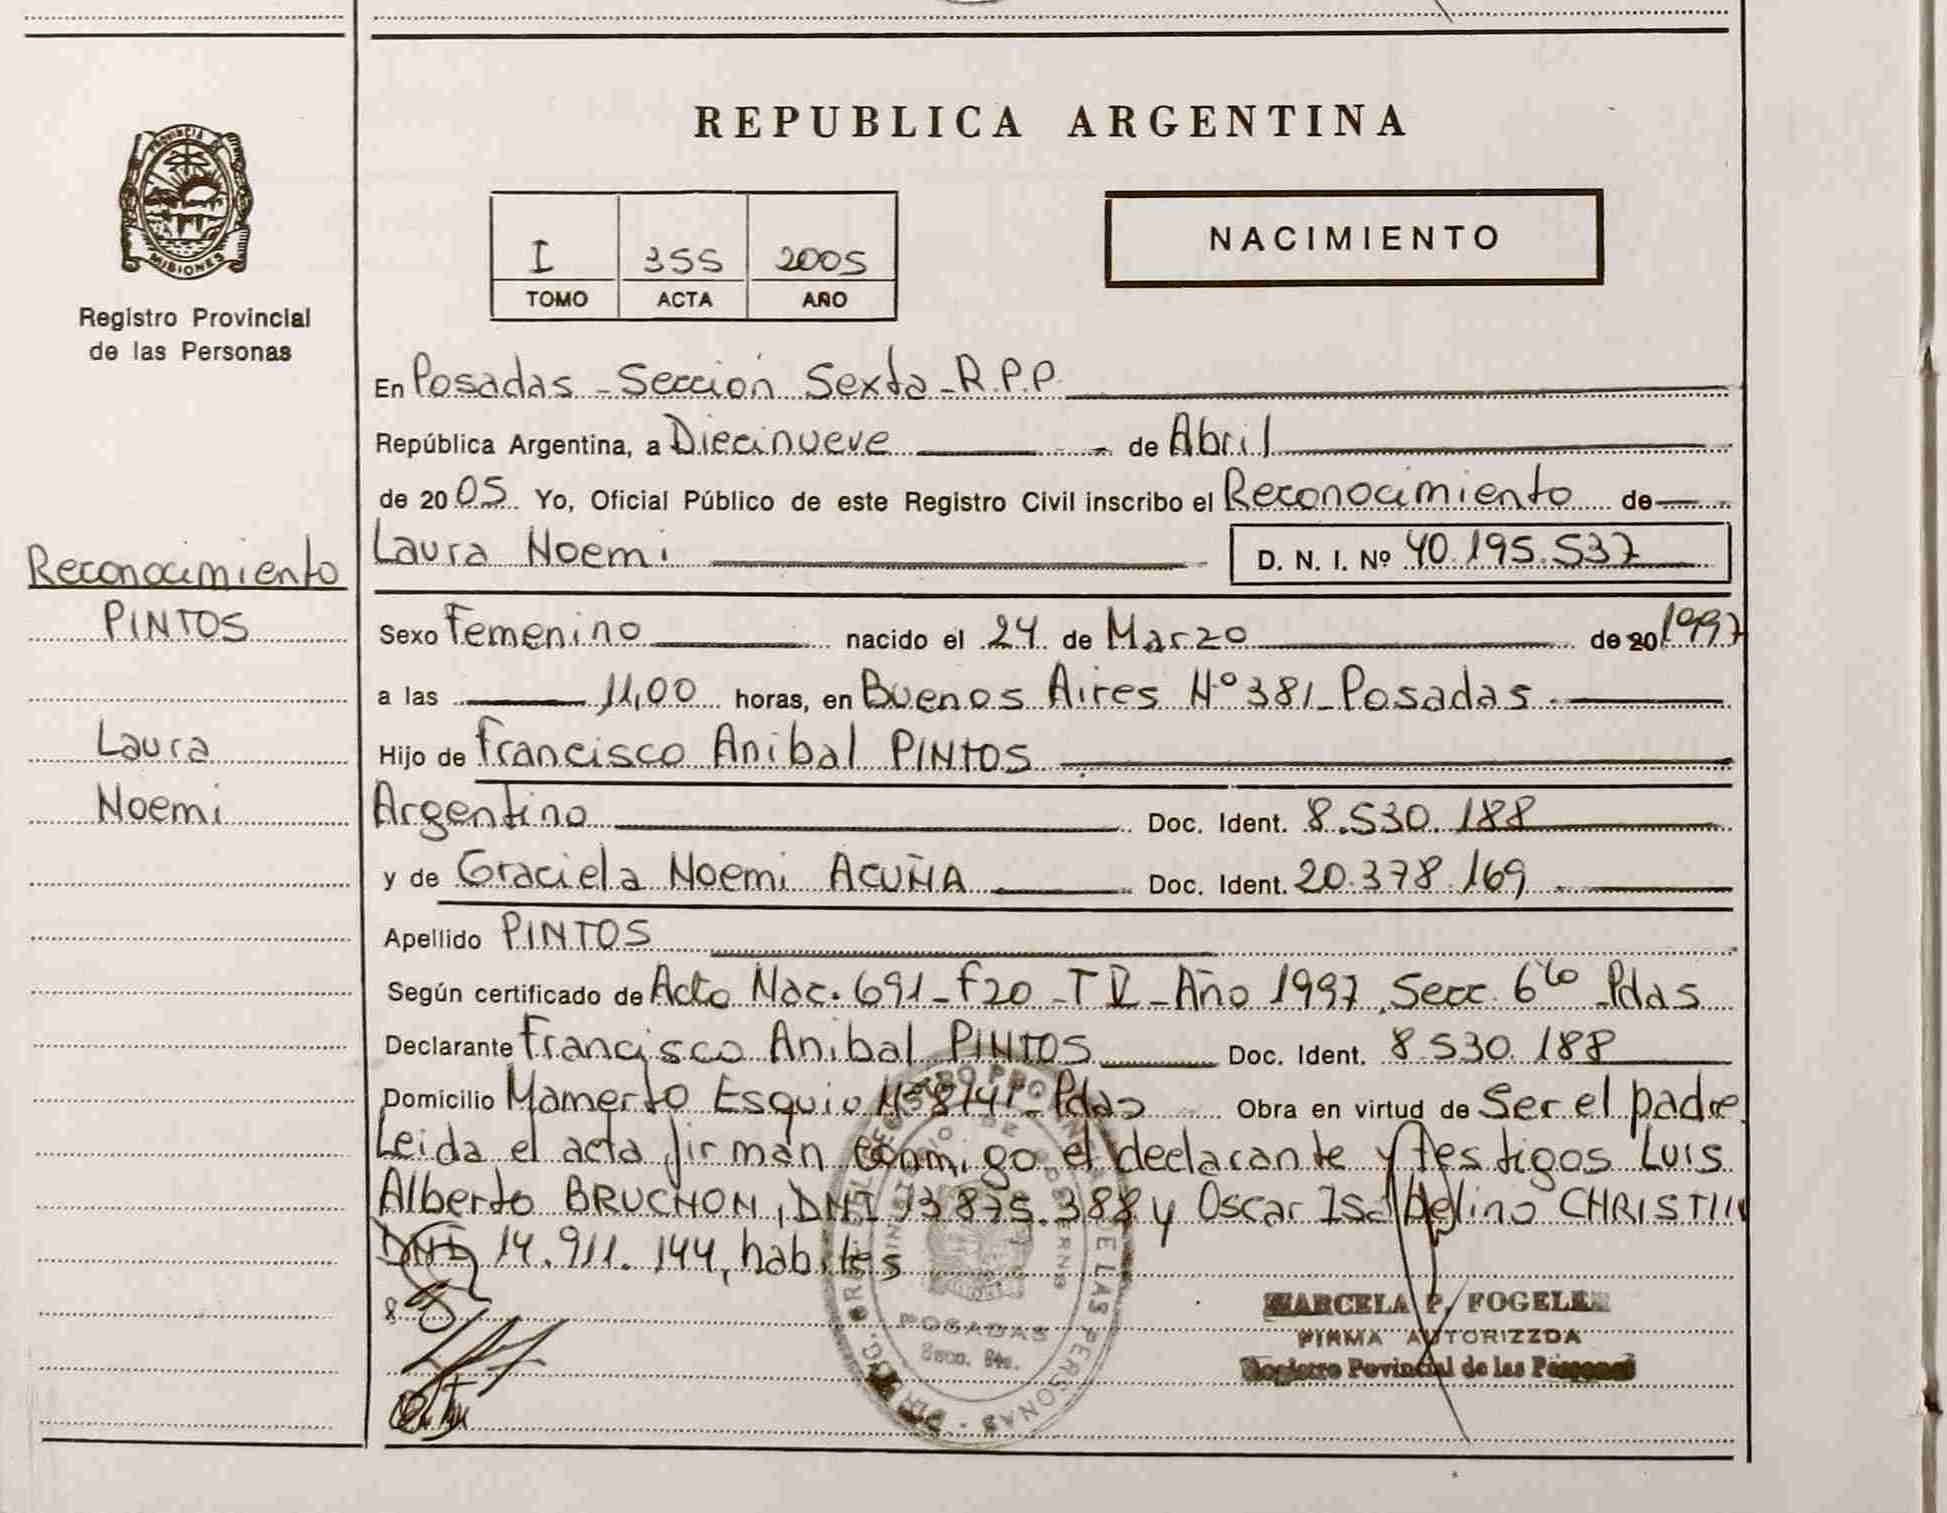 REPUBLICA ARGENTINA
PROVINCIA DE
MISIONES
Registro Provincial
de las Personas
NACIMIENTO
I 355 2005
TOMO ACTA AÑO
En Posadas - Sección Sexta - R.P.P.
República Argentina, a Diecinueve de Abril
de 2005. Yo, Oficial Público de este Registro Civil inscribo el Reconocimiento de
Laura Noemi D. N. I. Nº 40.195.537
Reconocimiento
PINTOS
Laura
Noemi
Sexo Femenino nacido el 24 de Marzo de 20 1997
a las 11,00 horas, en Buenos Aires Nº 381 - Posadas
Hijo de Francisco Anibal PINTOS
Argentino Doc. Ident. 8.530.188
y de Graciela Noemi ACUÑA Doc. Ident. 20.378.169
Apellido PINTOS
Según certificado de Acta Nac. 691 - F20 - T - Año 1997, Secc. 6ta Pdas
Declarante Francisco Anibal PINTOS Doc. Ident. 8.530.188
Domicilio Mamerto Esquiu - Pdas Obra en virtud de Ser el padre
Leida el acta firman conmigo el declarante y testigos Luis
Alberto BRUCHON, DNI 13.875.388 y Oscar Isabelino
DNI 14.911.144, habiles
MARCELA P.
FIRMA AUTORIZZDA
Registro Povincial de las Personas
POSADAS
Secc. 6ta.